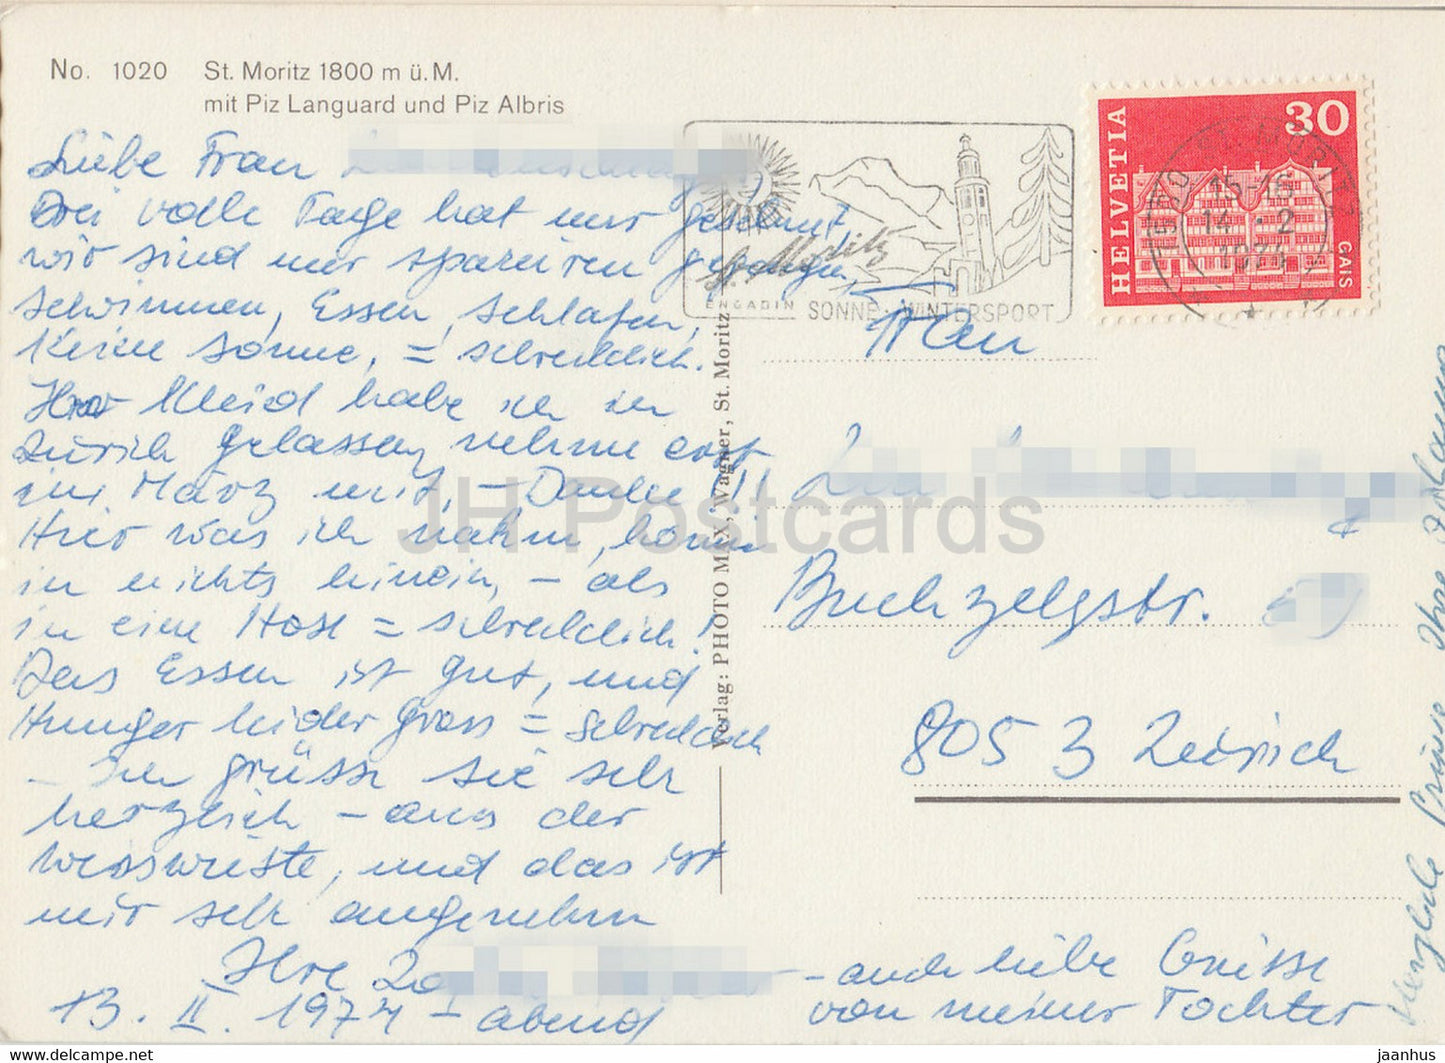 No. 1020 St. Moritz 1800 m ü. M.
mit Piz Languard und Piz Albris
Liebe Frau
Drei volle Tage hat nur gestürmt,
wir sind nur spazieren gegangen,
schwimmen, Essen, schlafen,
Keine Sonne, = schrecklich.
Ihr Kleid habe ich in
Zürich gelassen, nehme erst
im März mit, – Danke !!!
Hier was ich nahm, komm
in nichts hinein, – als
in eine Hose = schrecklich!
Das Essen ist gut, und
Hunger leider gross = schrecklich
– Ich grüsse sie sehr
herzlich – aus der
weisswüste, und das ist
mir sehr angenehm
Ihre
13. II. 1974 – abend
– auch liebe Grüsse
von meiner Tochter
Herzliche Grüsse Ihre
St. Moritz
ENGADIN SONNE WINTERSPORT
HELVETIA
30
CAIS
ST. MORITZ
15-16
14. 2
1974
Verlag: PHOTO MAX, Wagner, St. Moritz
Frau
Buchzelgstr.
8053 Zürich
JH Postcards
www.jaanhuus.com
jaanhuus.com